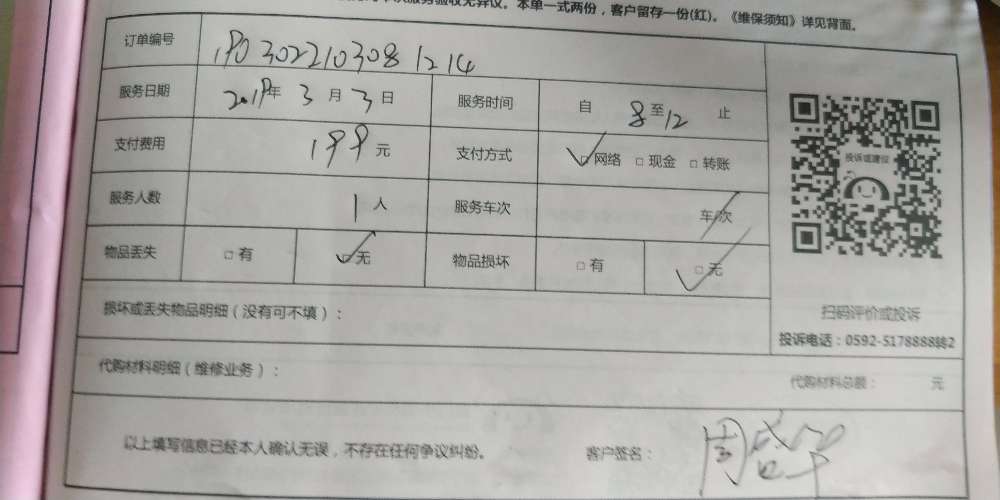 服务验收无异议。本单一式两份，客户留存一份(红)。《维保须知》详见背面。
订单编号 1903022103081214
服务日期 2019年 3 月 3 日 服务时间 自 8 至 12 止
支付费用 199 元 支付方式 网络 □ 现金 □ 转账
服务人数 1 人 服务车次 车/次
物品丢失 □ 有 无 物品损坏 □ 有 无
投诉或建议
损坏或丢失物品明细（没有可不填）：
扫码评价或投诉
投诉电话：0592-5178888转2
代购材料明细（维修业务）：
代购材料总额： 元
以上填写信息已经本人确认无误，不存在任何争议纠纷。 客户签名： 周